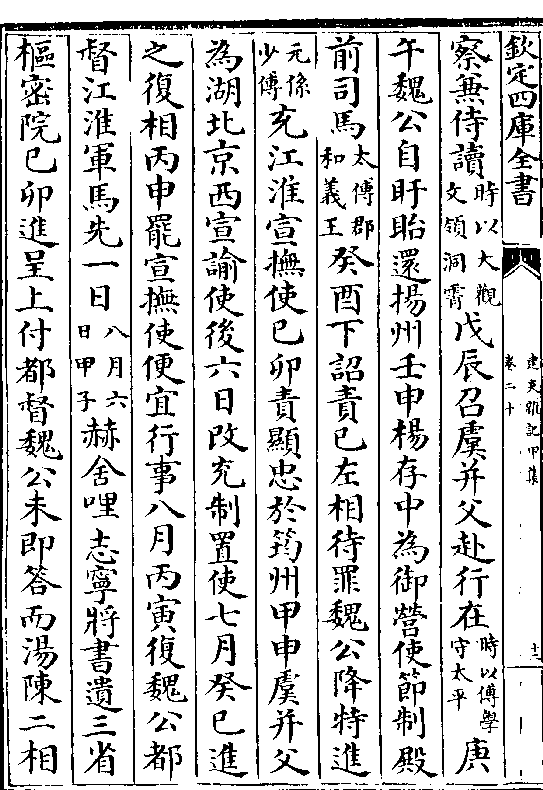 欽定四庫全書
建炎雜記甲集
卷二十
十二
察兼侍讀時以大觀文領洞霄戊辰召虞并父赴行在時以傅學守太平庚
午魏公自盱眙還揚州壬申楊存中為御營使節制殿
前司馬太傅郡和義王癸酉下詔責已左相待罪魏公降特進
元係少傅充江淮宣撫使已卯責顯忠於筠州甲申虞并父
為湖北京西宣諭使後六日改充制置使七月癸巳進
之復相丙申罷宣撫使便宜行事八月丙寅復魏公都
督江淮軍馬先一日八月六日甲子赫舍哩志寧將書遺三省
樞密院已卯進呈上付都督魏公未即答而湯陳二相